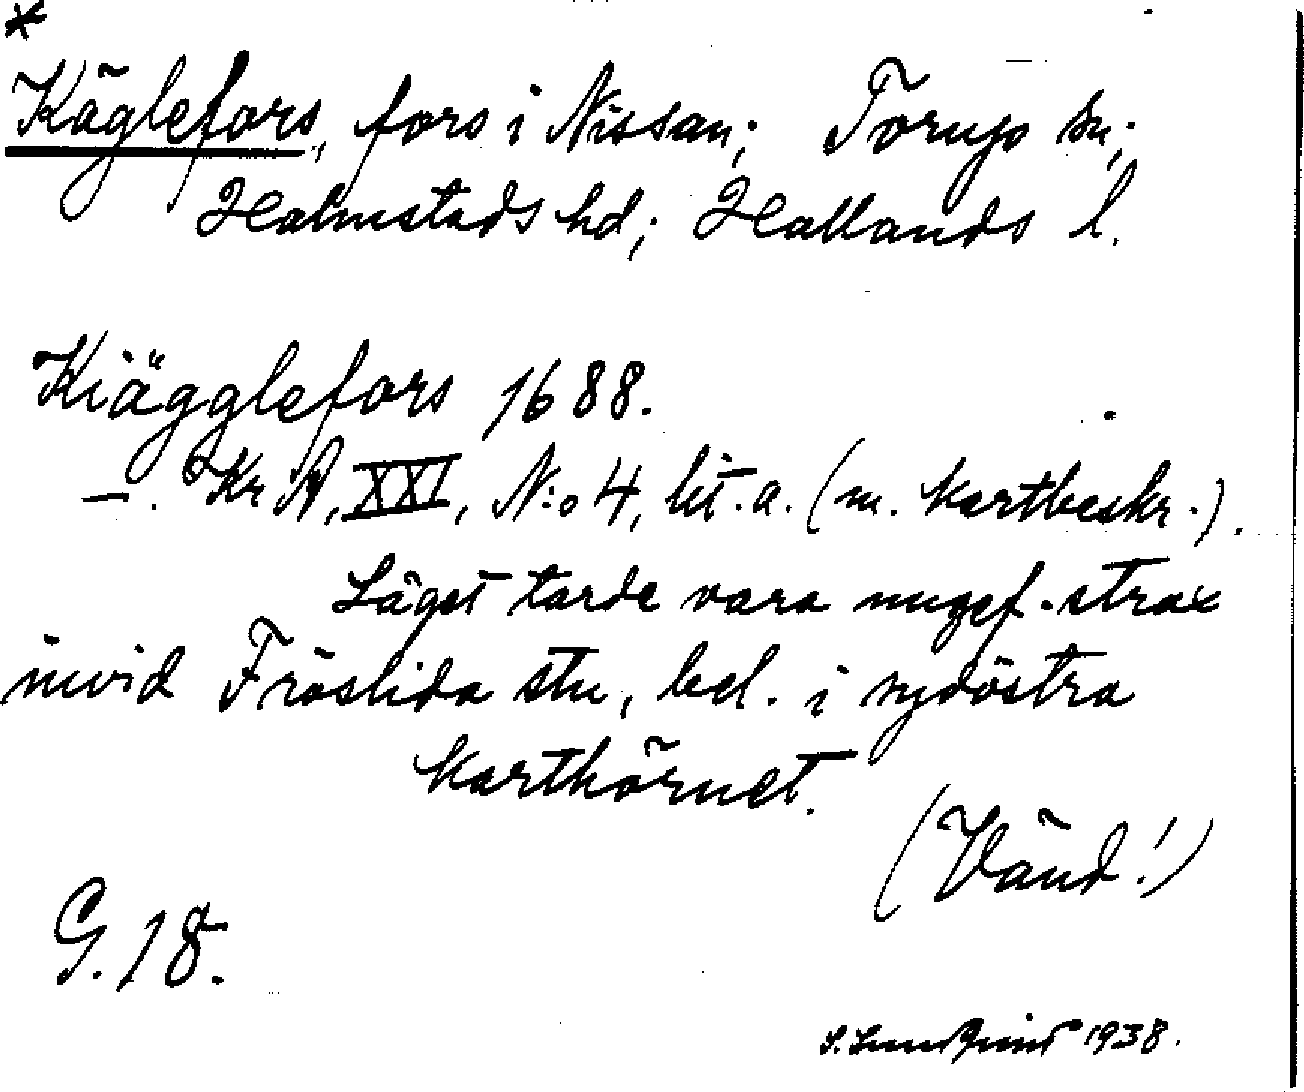 *
Käglefors, fors i Nissan; Torups sn;
Halmstads hd; Hallands l.
Kiägglefors 1688.
—. Kr A, XXI, N:o 4, lit. a. (m. kartbeskr.).
Läget torde vara ungef. strax
invid Fröslida stn, bel. i sydöstra
karthörnet.
(Vänd!)
G. 18.
S. Lundqvist 1938.